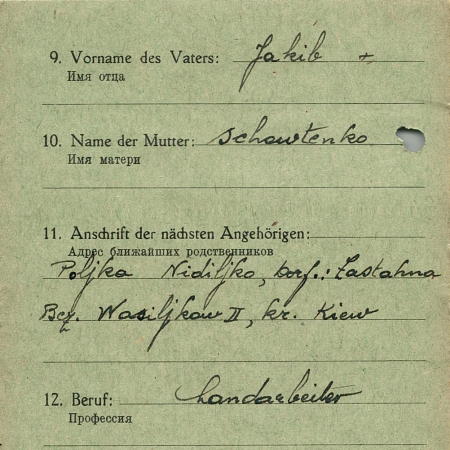 9. Vorname des Vaters: Jakib +
Имя отца
10. Name der Mutter: Schowtenko
Имя матери
11. Anschrift der nächsten Angehörigen:
Адрес ближайших родственников
Poljka Nidiljko, Dorf.: Zastahna
Bez. Wasiljkow II, kr. Kiew
12. Beruf: Landarbeiter
Профессия